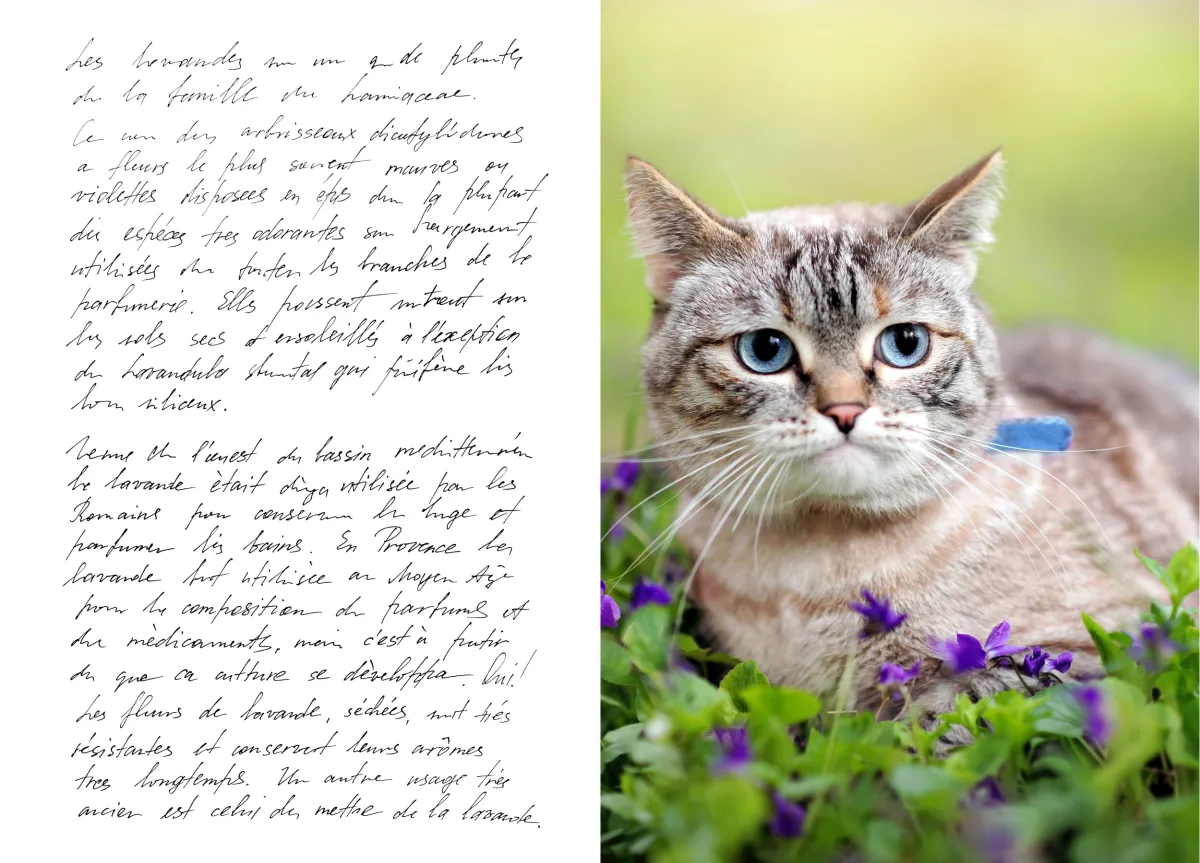 Les lavandes un de plantes
de la famille de Lamiaceae.
Ce arbrisseaux dicotylédones
a fleurs le plus souvent mauves ou
violettes disposées en épis la plupart
des espèces très odorantes largement
utilisées les branches de la
parfumerie. Elles poussent surtout sur
les sols secs et ensoleillés à l'exception
du Lavandula qui préfère les
siliceux.
Venue de l'ouest du bassin méditerranéen
la lavande était utilisée par les
Romains pour conserver le linge et
parfumer les bains. En Provence la
lavande fut utilisée au Moyen Age
pour la composition de parfums et
de mèdicaments, mais c'est à partir
du que sa culture se dèveloppa. Oui!
Les fleurs de lavande, séchées, sont très
résistantes et conservent leurs arômes
tres longtemps. Un autre usage très
ancien est celui de mettre de la lavande.